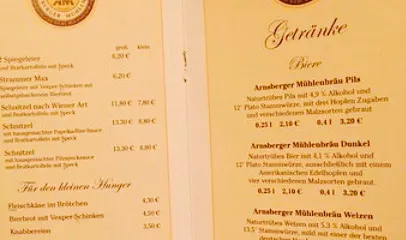 groß klein
2 Spiegeleier 6,20 €
und Bratkartoffeln mit Speck
Strammer Max 6,20 €
Spiegeleier mit Vesper-Schinken auf
selbstgebackenem Bierbrot
Schnitzel nach Wiener Art 11,80 € 7,80 €
und Bratkartoffeln mit Speck
Schnitzel 13,30 € 8,80 €
mit hausgemachter Paprika-Bier-Sauce
und Bratkartoffeln mit Speck
Schnitzel 13,30 € 8,80 €
mit hausgemachter Pilzrahmsauce
und Bratkartoffeln mit Speck
Für den kleinen Hunger
Fleischkäse im Brötchen 4,30 €
Bierbrot mit Vesper-Schinken 4,90 €
Knabbereien 3,50 €
Getränke
Biere
Arnsberger Mühlenbräu Pils
Naturtrübes Pils mit 4,9 % Alkohol und
12° Plato Stammwürze, mit drei Hopfen Zugaben
und verschiedenen Malzsorten gebraut
0.25 l 2,10 € 0,4 l 3,20 €
Arnsberger Mühlenbräu Dunkel
Naturtrübes Bier mit 4,1 % Alkohol und
12° Plato Stammwürze, ausschließlich mit einem
Amerikanischen Edelhopfen und
vier verschiedenen Malzsorten gebraut.
0.25 l 2,10 € 0,4 l 3,20 €
Arnsberger Mühlenbräu Weizen
Naturtrübes Weizen mit 5,3 % Alkohol und
13,5° Stammwürze, mild mit einer der besten